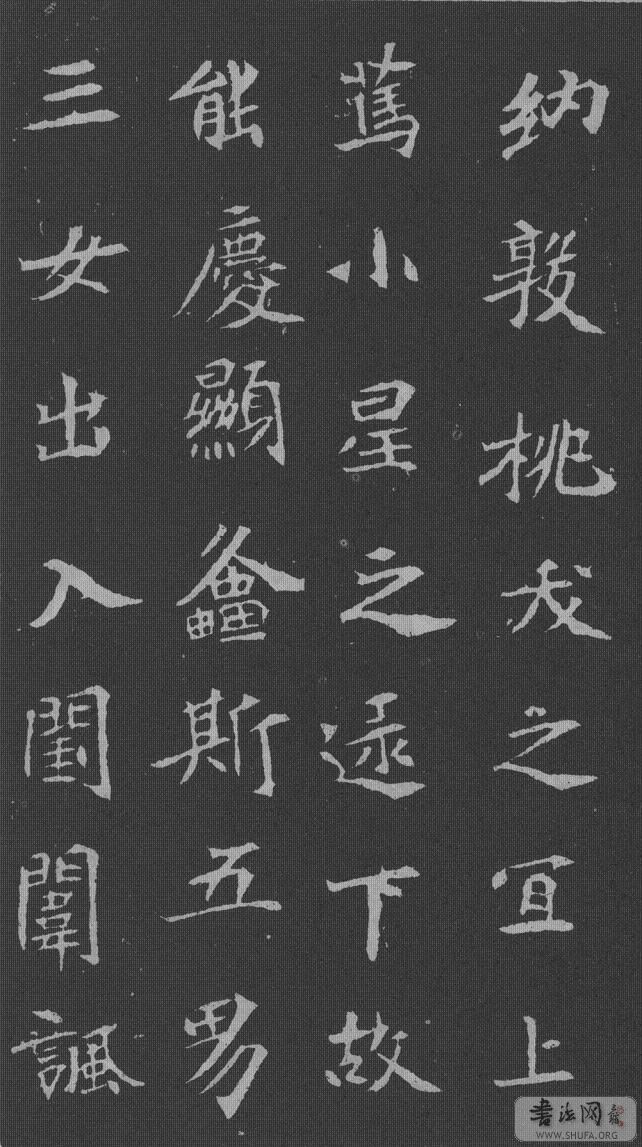 納敦桃夭之宜上
篤小星之逮下故
能慶顯螽斯五男
三女出入閨闈諷
書法网
WWW.SHUFA.ORG